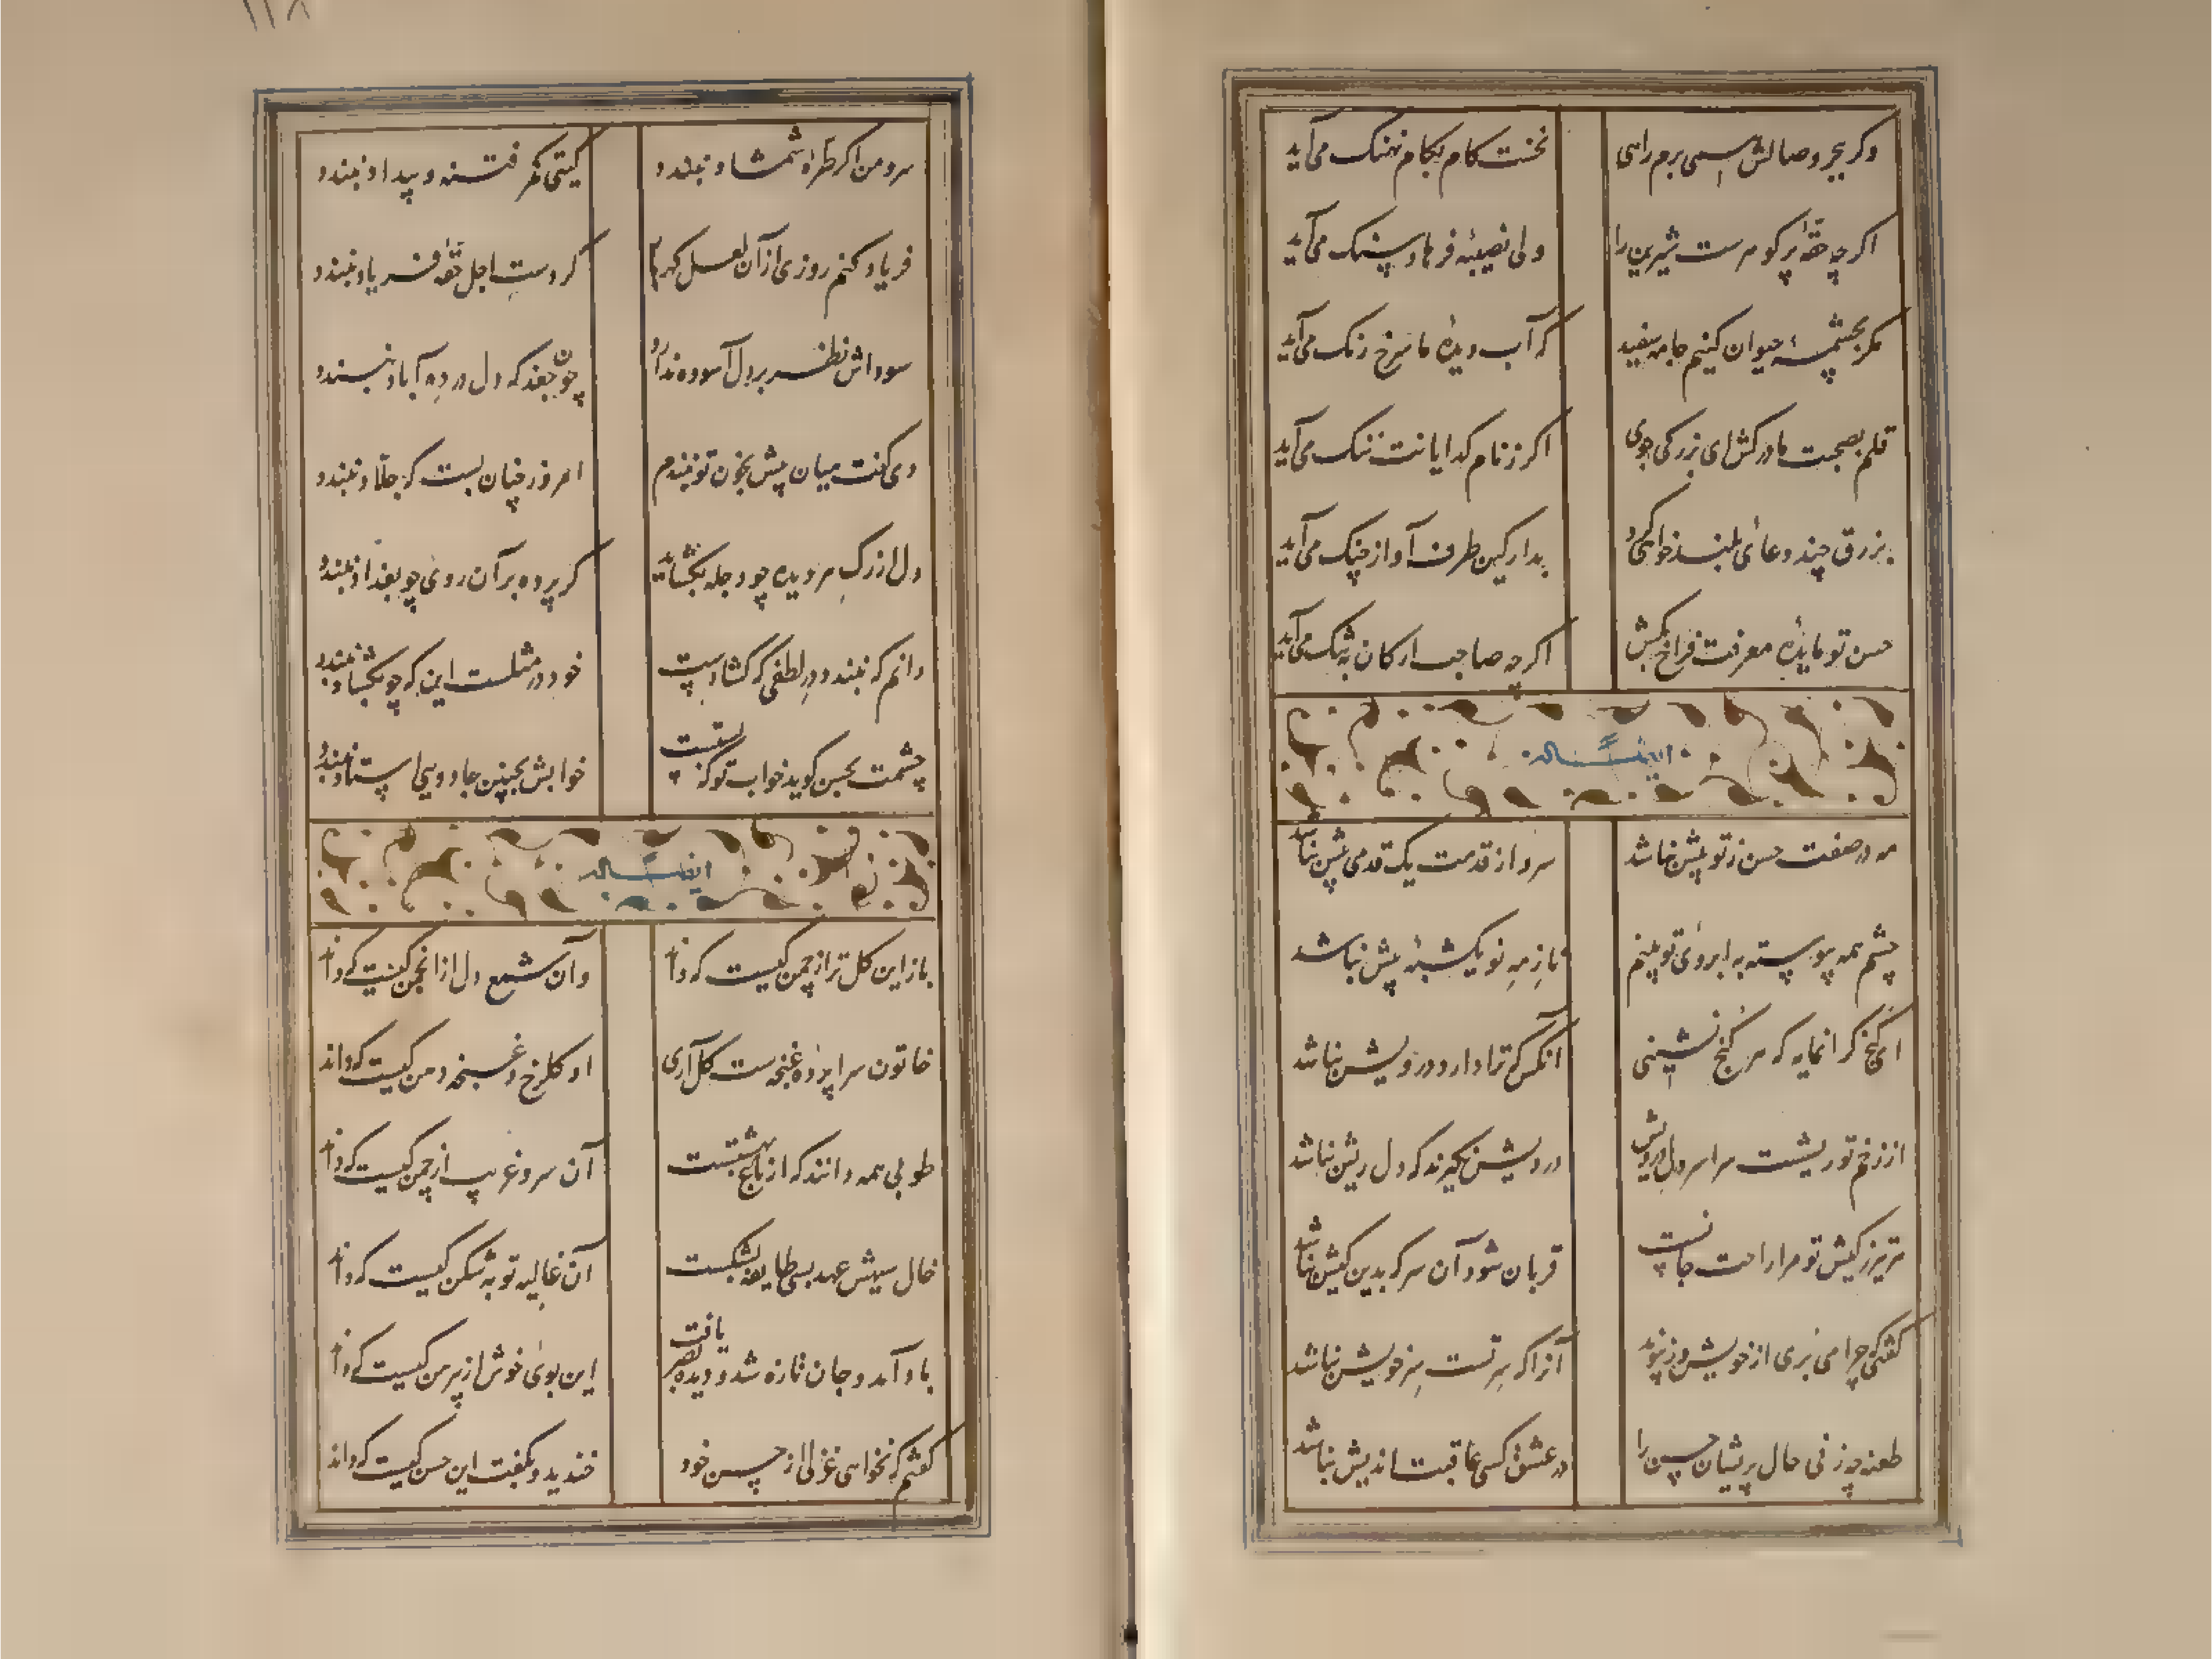 وکر بحر وصالش سپی برم راهی نخست کام بکام نهنک می‌آید
اکر چه حقهٔ پر کوهرست شیرین را ولی نصیبهٔ فرهاد سنک می‌آید
مکر بچشمهٔ حیوان کنیم جامه سفید که آب دیدهٔ ما سرخ رنک می‌آید
قلم بصحبت ما درکش ای بزرکی جوی اکر ز نام کدایانت ننک می‌آید
بزرق چند دعای بلند خواهی کرد بدار کین طرف آواز چنک می‌آید
حسن تو مایدهٔ معرفت فراخ بکش اکر چه صاحب ارکان به تنک می‌آید
ایضاً له
مه در صفت حسن ز تو پیش نباشد سرو از قدمت یک قدمی پیش نباشد
چشم همه پیوسته به ابروی تو بینم ماز مه نو یکشبهٔ پیش نباشد
ای کنج کرانمایه که در کنج نشینی آنکس که ترا دارد درویش نباشد
از زخم تو ریشست سراسر دل درویش درویش نکیرند که دل ریش نباشد
هر تیر ز کیش تو مرا راحت جانست قربان شود آن سر که بدین کیش نباشد
کفتی که چرا می نبری از خویش و ز پیوند آنرا که سر تست سر خویش نباشد
طعنه چه زنی حال پریشان حسن را در عشق کسی عاقبت اندیش نباشد
۱۱۸
سرو من اکر طرهٔ شمشاد نبندد کیتی کمر فتنه و بیداد نبندد
فریاد کنم روزی از آن لعل کهربا کر دست اجل حقهٔ فریاد نبندد
سوداش نظر بر دل آسوده ندارد چون جغد که دل در ده آباد نبندد
دی کفت میان پیش بخون تو نبندم امروز چنان بست که جلاد نبندد
دل از رک هر دیده چو دجله بکشاید کر پرده بر آن روی چو بغداد نبندد
دانم که نبندد در لطفی که کشادست خود در مثلست این که چو بکشاد نبندد
چشمت بحسن کوید خواب تو که بستست خوابش بچنین جادویی استاد نبندد
ایضاً له
باز این کل تر از چمن کیست که داند وان شمع دل از انجمن کیست که داند
خاتون سراپردهٔ غنچه‌ست کل آری او کلرخ و غنچه دهن کیست که داند
طوبی همه دانند که از باغ بهشتست آن سرو غریب از چمن کیست که داند
خال سیهش عهد بسی طایفه بشکست آن غالیه توبه شکن کیست که داند
باد آمد و جان تازه شد و دیده بصر یافت این بوی خوش از پیرهن کیست که داند
کفتم که نخواهی غزلی از حسن خود خندید و بکفت این حسن کیست که داند